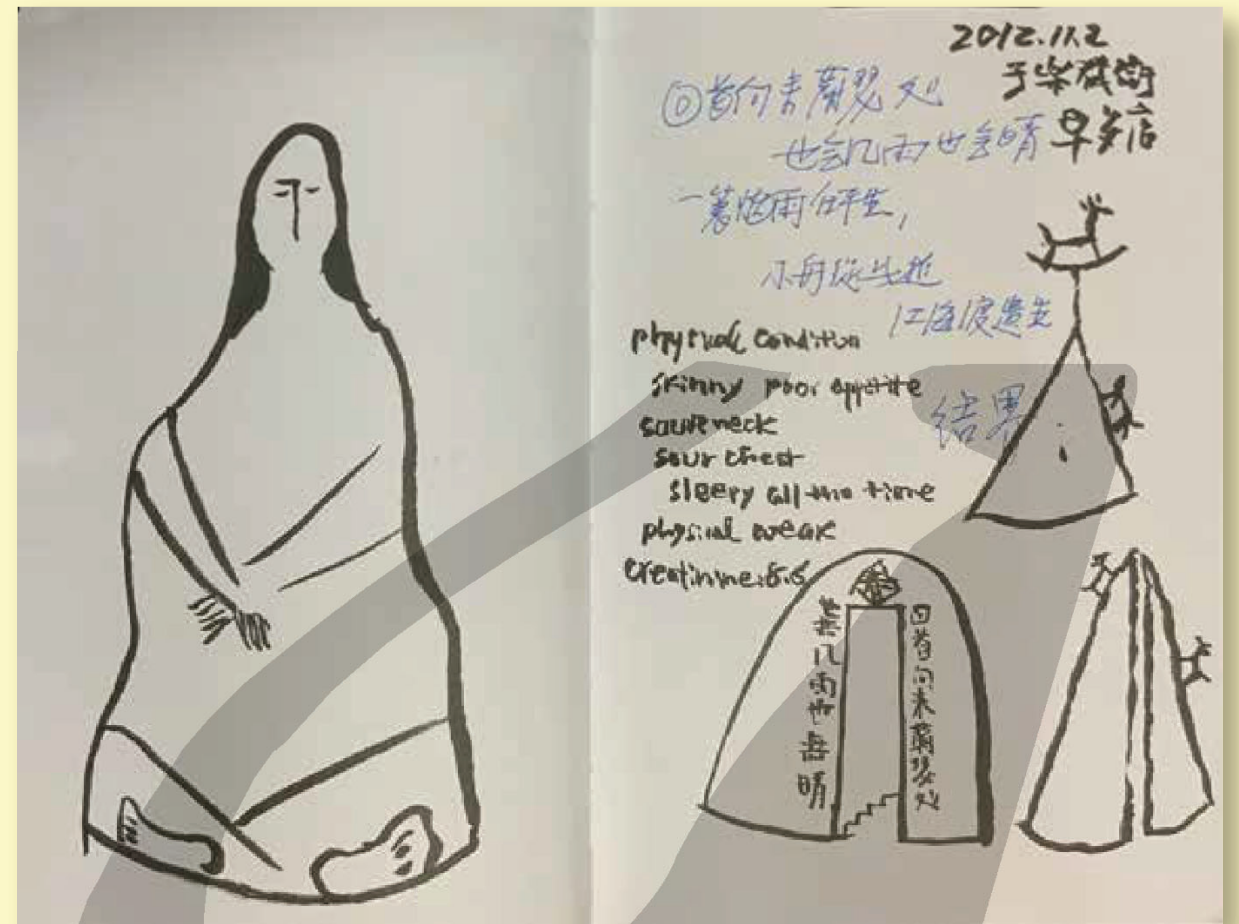 2012.11.2
于柴棒街
早岁店
回首向来萧瑟处
也会几雨也会晴
一蓑烟雨任平生,
小舟从此逝
江海度遗生
physical condition
skinny poor appetite
sour neck
sour chest
sleepy all the time
physical weak
creatinine:6.6
结果
回首向来萧瑟处
无几雨也无晴